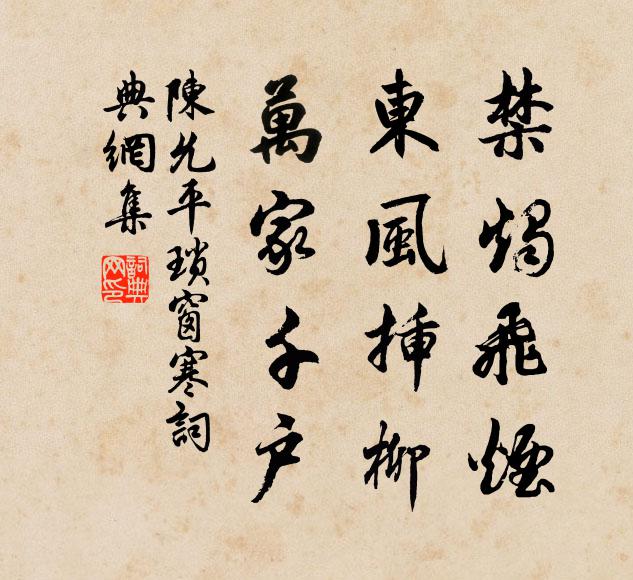 禁燭飛煙
東風挿柳
萬家千戶
陳允平瑣窗寒詞
典網集
詞典網印